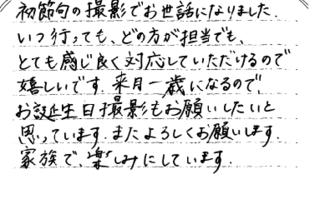 初節句の撮影でお世話になりました.
いつ行っても、どの方が担当でも、
とても感じ良く対応していただけるので
嬉しいです. 来月一歳になるので、
お誕生日撮影もお願いしたいと
思っています. またよろしくお願いします.
家族で、楽しみにしています.